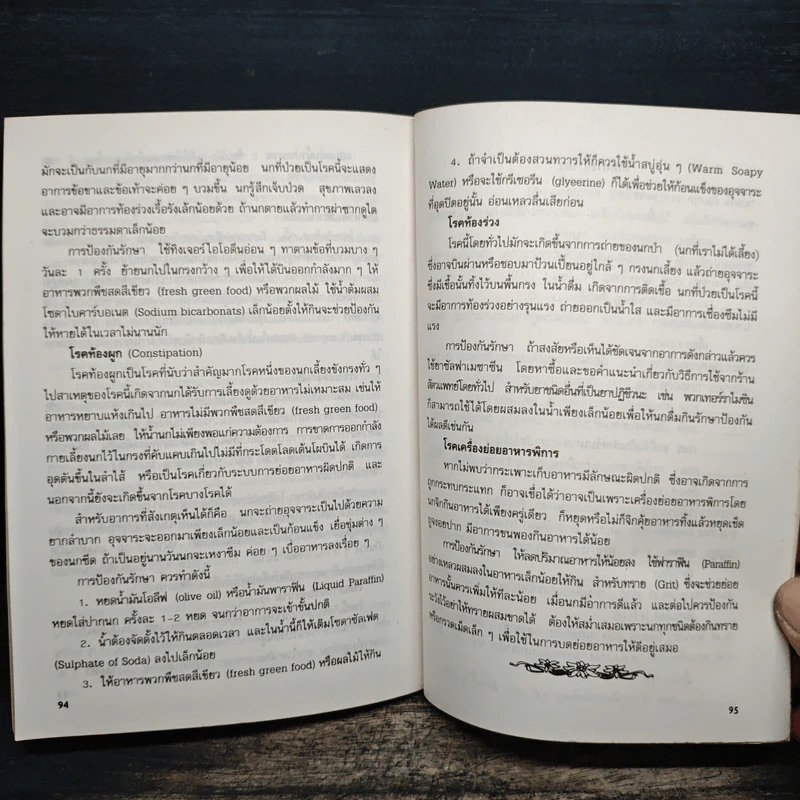 มักจะเป็นกับนกที่มีอายุมากกว่านกที่มีอายุน้อย นกที่ป่วยเป็นโรคนี้จะแสดง
อาการข้อขาและข้อเท้าจะค่อย ๆ บวมขึ้น นกรู้สึกเจ็บปวด สุขภาพเลวลง
และอาจมีอาการท้องร่วงเรื้อรังเล็กน้อยด้วย ถ้านกตายแล้วทำการผ่าซากดูไต
จะบวมกว่าธรรมดาเล็กน้อย
การป้องกันรักษา ใช้ทิงเจอร์ไอโอดีนอ่อน ๆ ทาตามข้อที่บวมบาง ๆ
วันละ 1 ครั้ง ย้ายนกไปในกรงกว้าง ๆ เพื่อให้ได้บินออกกำลังมาก ๆ ให้
อาหารพวกพืชสดสีเขียว (fresh green food) หรือพวกผลไม้ ใช้น้ำต้มผสม
โซดาไบคาร์บอเนต (Sodium bicarbonats) เล็กน้อยตั้งให้กินจะช่วยป้องกัน
ให้หายได้ในเวลาไม่นานนัก
โรคท้องผูก (Constipation)
โรคท้องผูกเป็นโรคที่นับว่าสำคัญมากโรคหนึ่งของนกเลี้ยงขังกรงทั่ว ๆ
ไปสาเหตุของโรคนี้เกิดจากนกได้รับการเลี้ยงดูด้วยอาหารไม่เหมาะสม เช่นให้
อาหารหยาบแห้งเกินไป อาหารไม่มีพวกพืชสดสีเขียว (fresh green food)
หรือพวกผลไม้เลย ให้น้ำนกไม่เพียงพอแก่ความต้องการ การขาดการออกกำลัง
กายเลี้ยงนกไว้ในกรงที่คับแคบเกินไปไม่มีที่กระโดดโลดเต้นโผบินได้ เกิดการ
อุดตันขึ้นในลำไส้ หรือเป็นโรคเกี่ยวกับระบบการย่อยอาหารผิดปกติ และ
นอกจากนี้ยังจะเกิดขึ้นจากโรคบางโรคได้
สำหรับอาการที่สังเกตุเห็นได้ก็คือ นกจะถ่ายอุจจาระเป็นไปด้วยความ
ยากลำบาก อุจจาระจะออกมาเพียงเล็กน้อยและเป็นก้อนแข็ง เยื่อชุ่มต่าง ๆ
ของนกซีด ถ้าเป็นอยู่นานวันนกจะเหงาซึม ค่อย ๆ เบื่ออาหารลงเรื่อย ๆ
การป้องกันรักษา ควรทำดังนี้
1. หยดน้ำมันโอลีฟ (olive oil) หรือน้ำมันพาราฟิน (Liquid Paraffin)
หยดใส่ปากนก ครั้งละ 1-2 หยด จนกว่าอาการจะเข้าขั้นปกติ
2. น้ำต้องจัดตั้งไว้ให้กินตลอดเวลา และในน้ำนี้ก็ให้เติมโซดาซัลเฟต
(Sulphate of Soda) ลงไปเล็กน้อย
3. ให้อาหารพวกพืชสดสีเขียว (fresh green food) หรือผลไม้ให้กิน
94
4. ถ้าจำเป็นต้องสวนทวารให้ก็ควรใช้น้ำสบู่อุ่น ๆ (Warm Soapy
Water) หรือจะใช้กรีเซอรีน (glyeerine) ก็ได้เพื่อช่วยให้ก้อนแข็งของอุจจาระ
ที่อุดปิดอยู่นั้น อ่อนเหลวลื่นเสียก่อน
โรคท้องร่วง
โรคนี้โดยทั่วไปมักจะเกิดขึ้นจากการถ่ายของนกป่า (นกที่เราไม่ได้เลี้ยง)
ซึ่งอาจบินผ่านหรือชอบมาป้วนเปี้ยนอยู่ใกล้ ๆ กรงนกเลี้ยง แล้วถ่ายอุจจาระ
ซึ่งมีเชื้อนั้นทิ้งไว้บนพื้นกรง ในน้ำดื่ม เกิดจากการติดเชื้อ นกที่ป่วยเป็นโรคนี้
จะมีอาการท้องร่วงอย่างรุนแรง ถ่ายออกเป็นน้ำใส และมีอาการเชื่องซึมไม่มี
แรง
การป้องกันรักษา ถ้าสงสัยหรือเห็นได้ชัดเจนจากอาการดังกล่าวแล้วควร
ใช้ยาซัลฟาเมซาซีน โดยหาซื้อและขอคำแนะนำเกี่ยวกับวิธีการใช้จากร้าน
สัตวแพทย์โดยทั่วไป สำหรับยาชนิดอื่นที่เป็นยาปฏิชีวนะ เช่น พวกเทอร์ราไมซิน
ก็สามารถใช้ได้โดยผสมลงในน้ำเพียงเล็กน้อยเพื่อให้นกดื่มกินรักษาป้องกัน
ได้ผลดีเช่นกัน
โรคเครื่องย่อยอาหารพิการ
หากไม่พบว่ากระเพาะเก็บอาหารมีลักษณะผิดปกติ ซึ่งอาจเกิดจากการ
ถูกกระทบกระแทก ก็อาจเชื่อได้ว่าอาจเป็นเพราะเครื่องย่อยอาหารพิการโดย
นกจิกกินอาหารได้เพียงครู่เดียว ก็หยุดหรือไม่ก็จิกคุ้ยอาหารทิ้งแล้วหยุดเช็ด
ถุงจงอยปาก มีอาการขนพองกินอาหารได้น้อย
การป้องกันรักษา ให้ลดปริมาณอาหารให้น้อยลง ใช้พาราฟิน (Paraffin)
อย่างเหลวผสมลงในอาหารเล็กน้อยให้กิน สำหรับทราย (Grit) ซึ่งจะช่วยย่อย
อาหารนั้นควรเพิ่มให้ทีละน้อย เมื่อนกมีอาการดีแล้ว และต่อไปควรป้องกัน
ระวังไว้อย่าให้ทรายผสมขาดได้ ต้องให้สม่ำเสมอเพราะนกทุกชนิดต้องกินทราย
หรือกรวดเม็ดเล็ก ๆ เพื่อใช้ในการบดย่อยอาหารให้ดีอยู่เสมอ
95